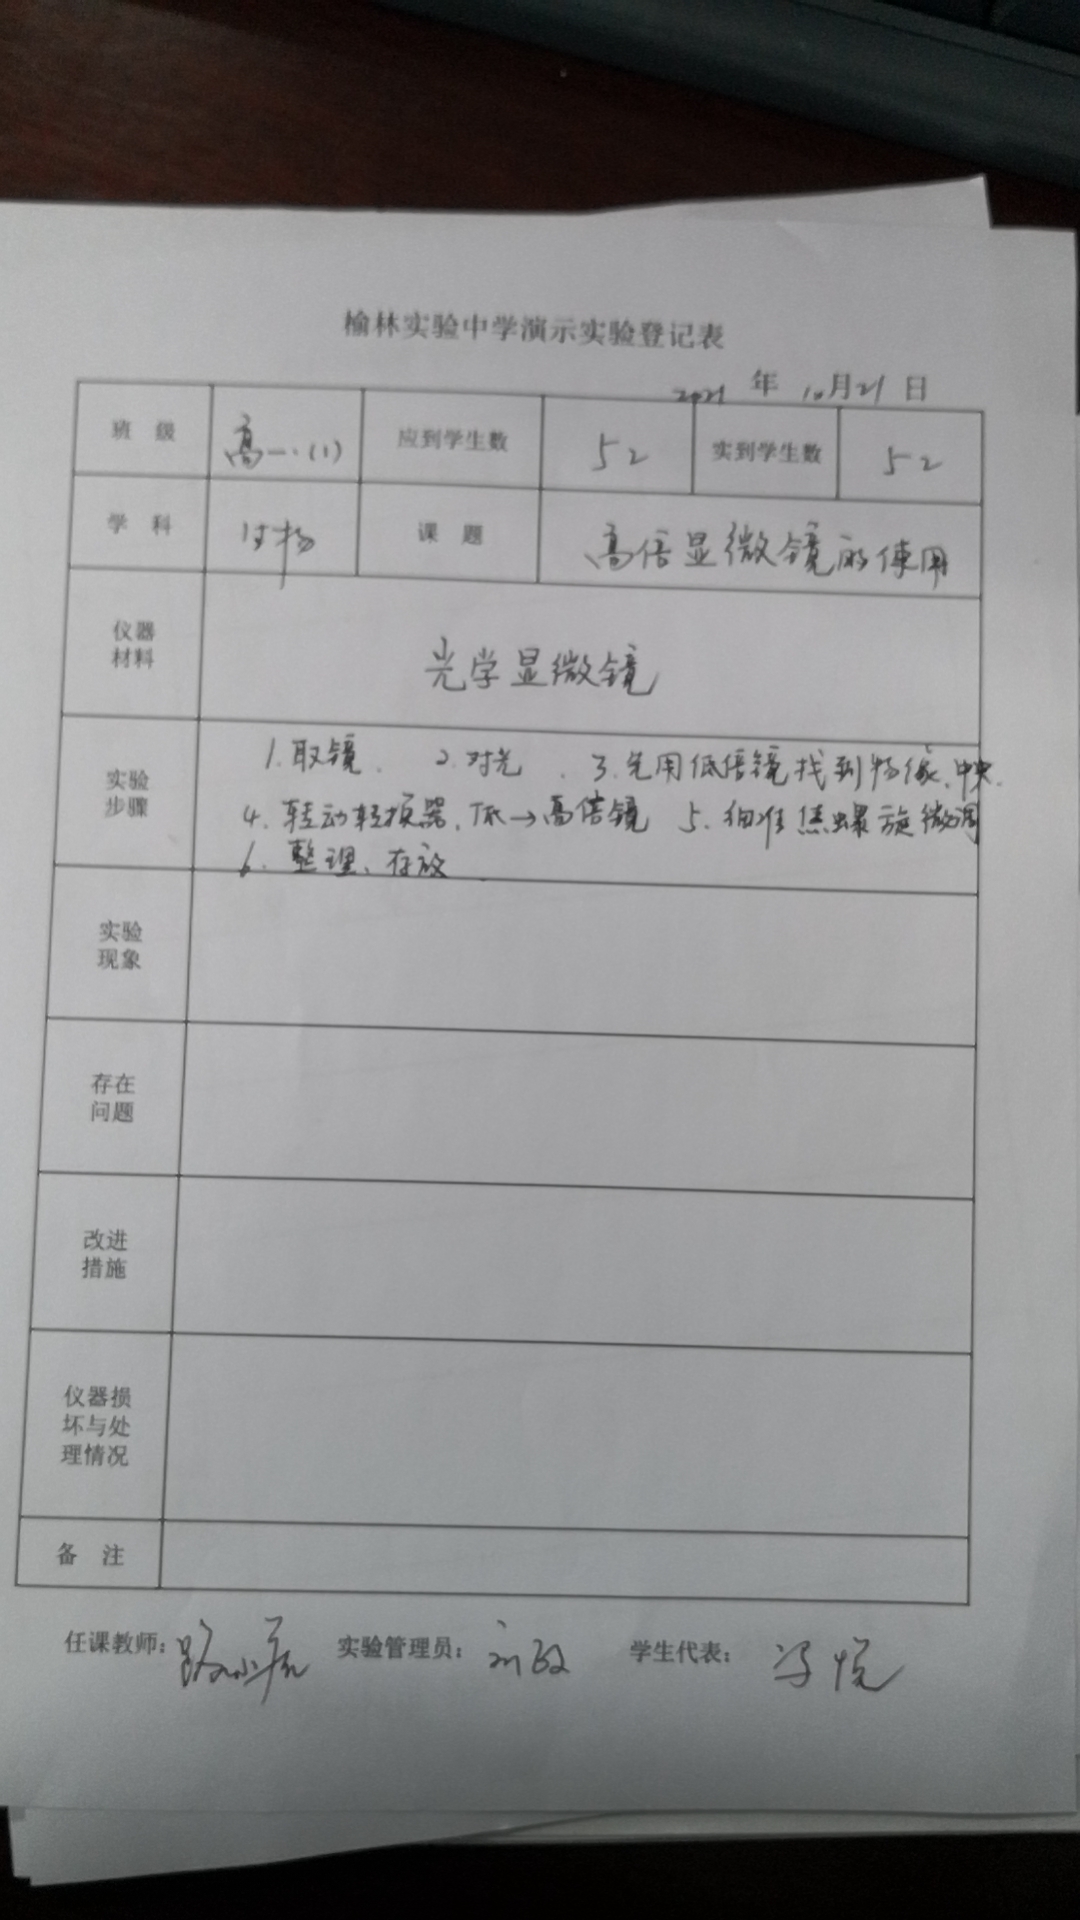 榆林实验中学演示实验登记表
2021 年 10月21日
班 级 高一.(1) 应到学生数 52 实到学生数 52
学 科 生物 课 题 高倍显微镜的使用
仪器
材料
光学显微镜
实验
步骤
1.取镜、 2.对光 、3.先用低倍镜找到物像、中央.
4.转动转换器,低→高倍镜 5.细准焦螺旋微调
6.整理、存放
实验
现象
存在
问题
改进
措施
仪器损
坏与处
理情况
备 注
任课教师: 实验管理员: 刘政 学生代表: 冯悦